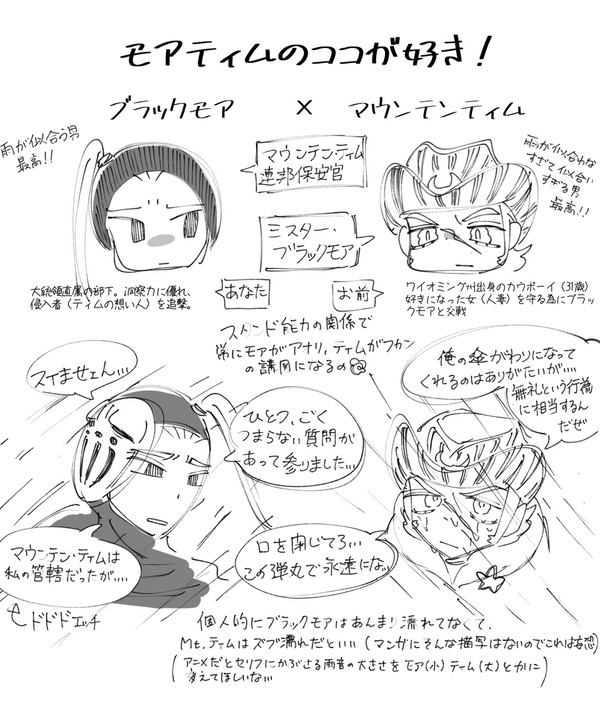 モアティムのココが好き!
ブラックモア × マウンテンティム
雨が似合う男
最高!!
マウンテン・ティム
連邦保安官
雨が似合わな
すぎて似合い
すぎる男
最高!!
ミスター・
ブラックモア
大統領直属の部下。洞察力に優れ、
侵入者(ティムの想い人)を追撃。
あなた
お前
ワイオミング州出身のカウボーイ(31歳)
好きになった女(人妻)を守る為にブラッ
クモアと交戦
スタンド能力の関係で
常にモアがアオリ、ティムがフカン
の構図になるの
スイませェん…
俺の傘がわりになって
くれるのはありがたいが…
無礼という行為
に相当するん
だぜ
ひとつ、ごく
つまらない質問が
あって参りました…
マウンテン・ティムは
私の管轄だったが…
口を閉じてろ…
この弾丸で永遠にな…
ドドドエッチ
個人的にブラックモアはあんまり濡れてなくて、
Mt.ティムはズブ濡れだといい(マンガにそんな描写はないのでこれは妄想)
(アニメだとセリフにかぶさる雨音の大きさをモア(小)ティム(大)とかに
変えてほしいな…)